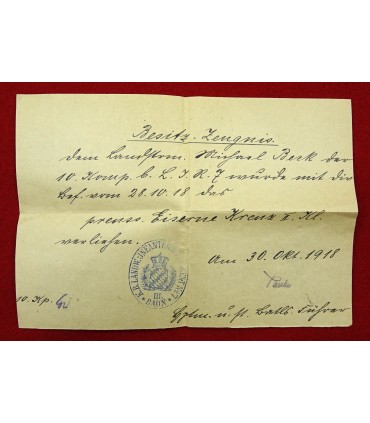 Besitz-Zeugnis.
dem Landstrm. Michael Beck der
10. Komp. b. L. I. R. 7 wurde mit Div
Bef. vom 28.10.18 das
preuss. Eiserne Kreuz II. Kl.
verliehen.
Am 30. Okt. 1918
K.B. LANDW. INFANTERIE
III.
BAON
10. Kp.
Hptm. u. st. Batls. Führer